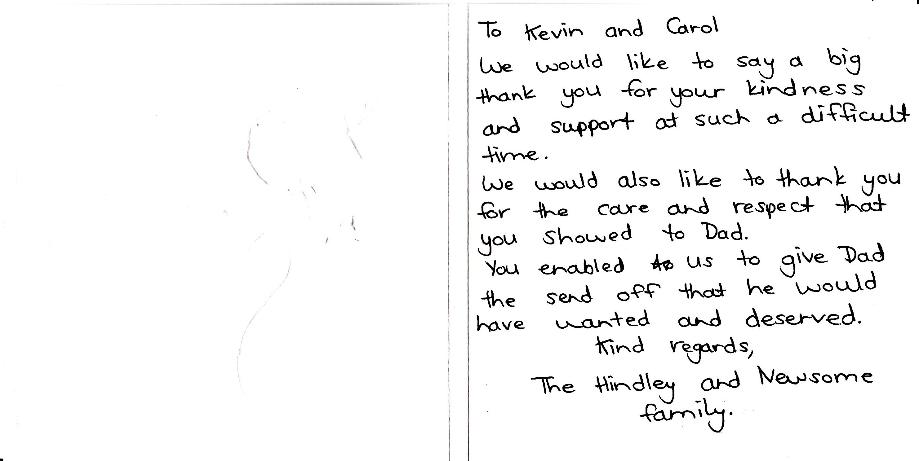 To Kevin and Carol
We would like to say a big
thank you for your kindness
and support at such a difficult
time.
We would also like to thank you
for the care and respect that
you showed to Dad.
You enabled to us to give Dad
the send off that he would
have wanted and deserved.
Kind regards,
The Hindley and Newsome
family.